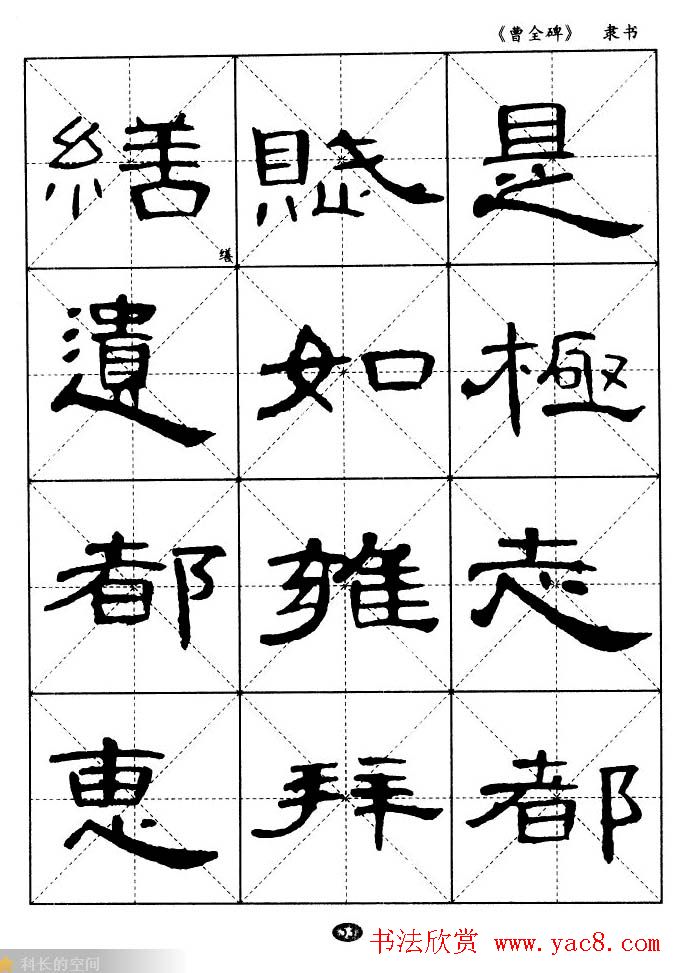 《曹全碑》 隶书
是極志都
賦如雍拜
繕遺都惠
缮
书法欣赏 www.yac8.com
科长的空间